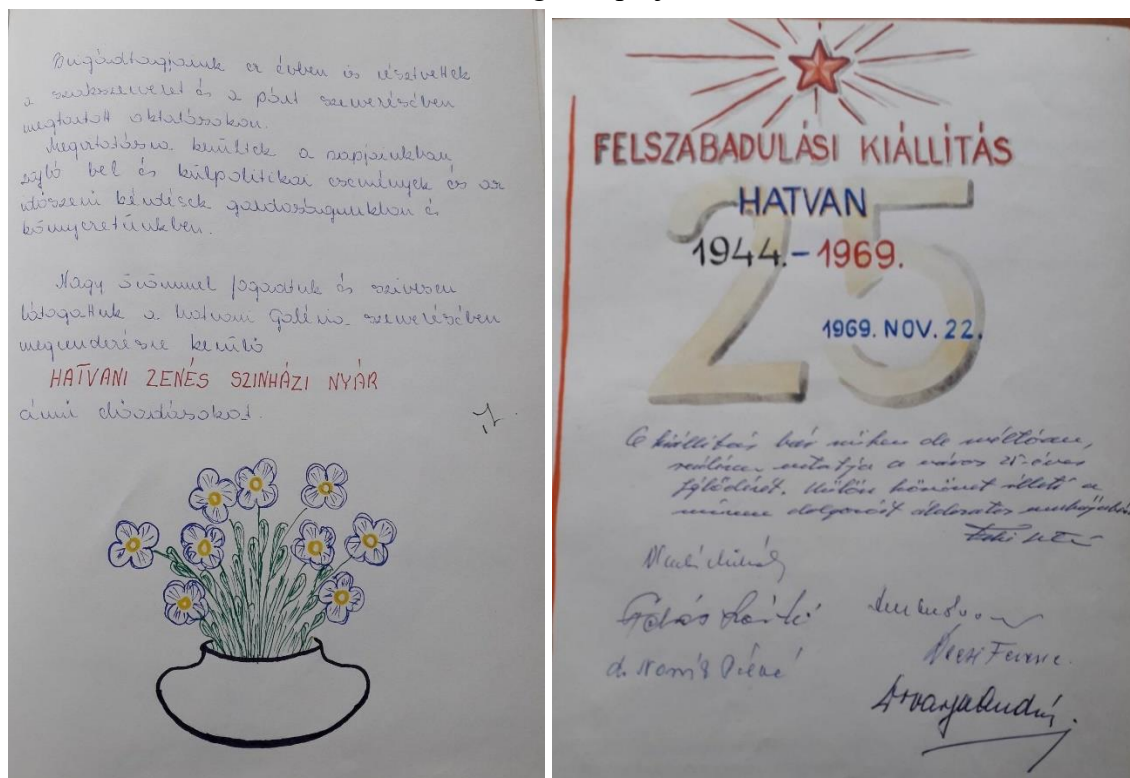 Brigádtagjaink ez évben is résztvettek
a szakszervezet és a párt szervezésében
megtartott oktatásokon.
Megvitatásra kerültek a napjainkban
zajló bel és külpolitikai események és az
időszerű kérdések gazdaságunkban és
környezetünkben.
Nagy örömmel fogadtuk és szívesen
látogattuk a hatvani Galéria szervezésében
megrendezésre kerülő
HATVANI ZENÉS SZINHÁZI NYÁR
című előadásokat.
FELSZABADULÁSI KIÁLLÍTÁS
25
HATVAN
1944.-1969.
1969. NOV. 22.
A kiállítás bár szűken de méltóan,
reálisan mutatja a város 25-éves
fejlődését. Külön köszönet illeti a
múzeum dolgozóit áldozatos munkájukért.
Mihály
dr.
Ferenc